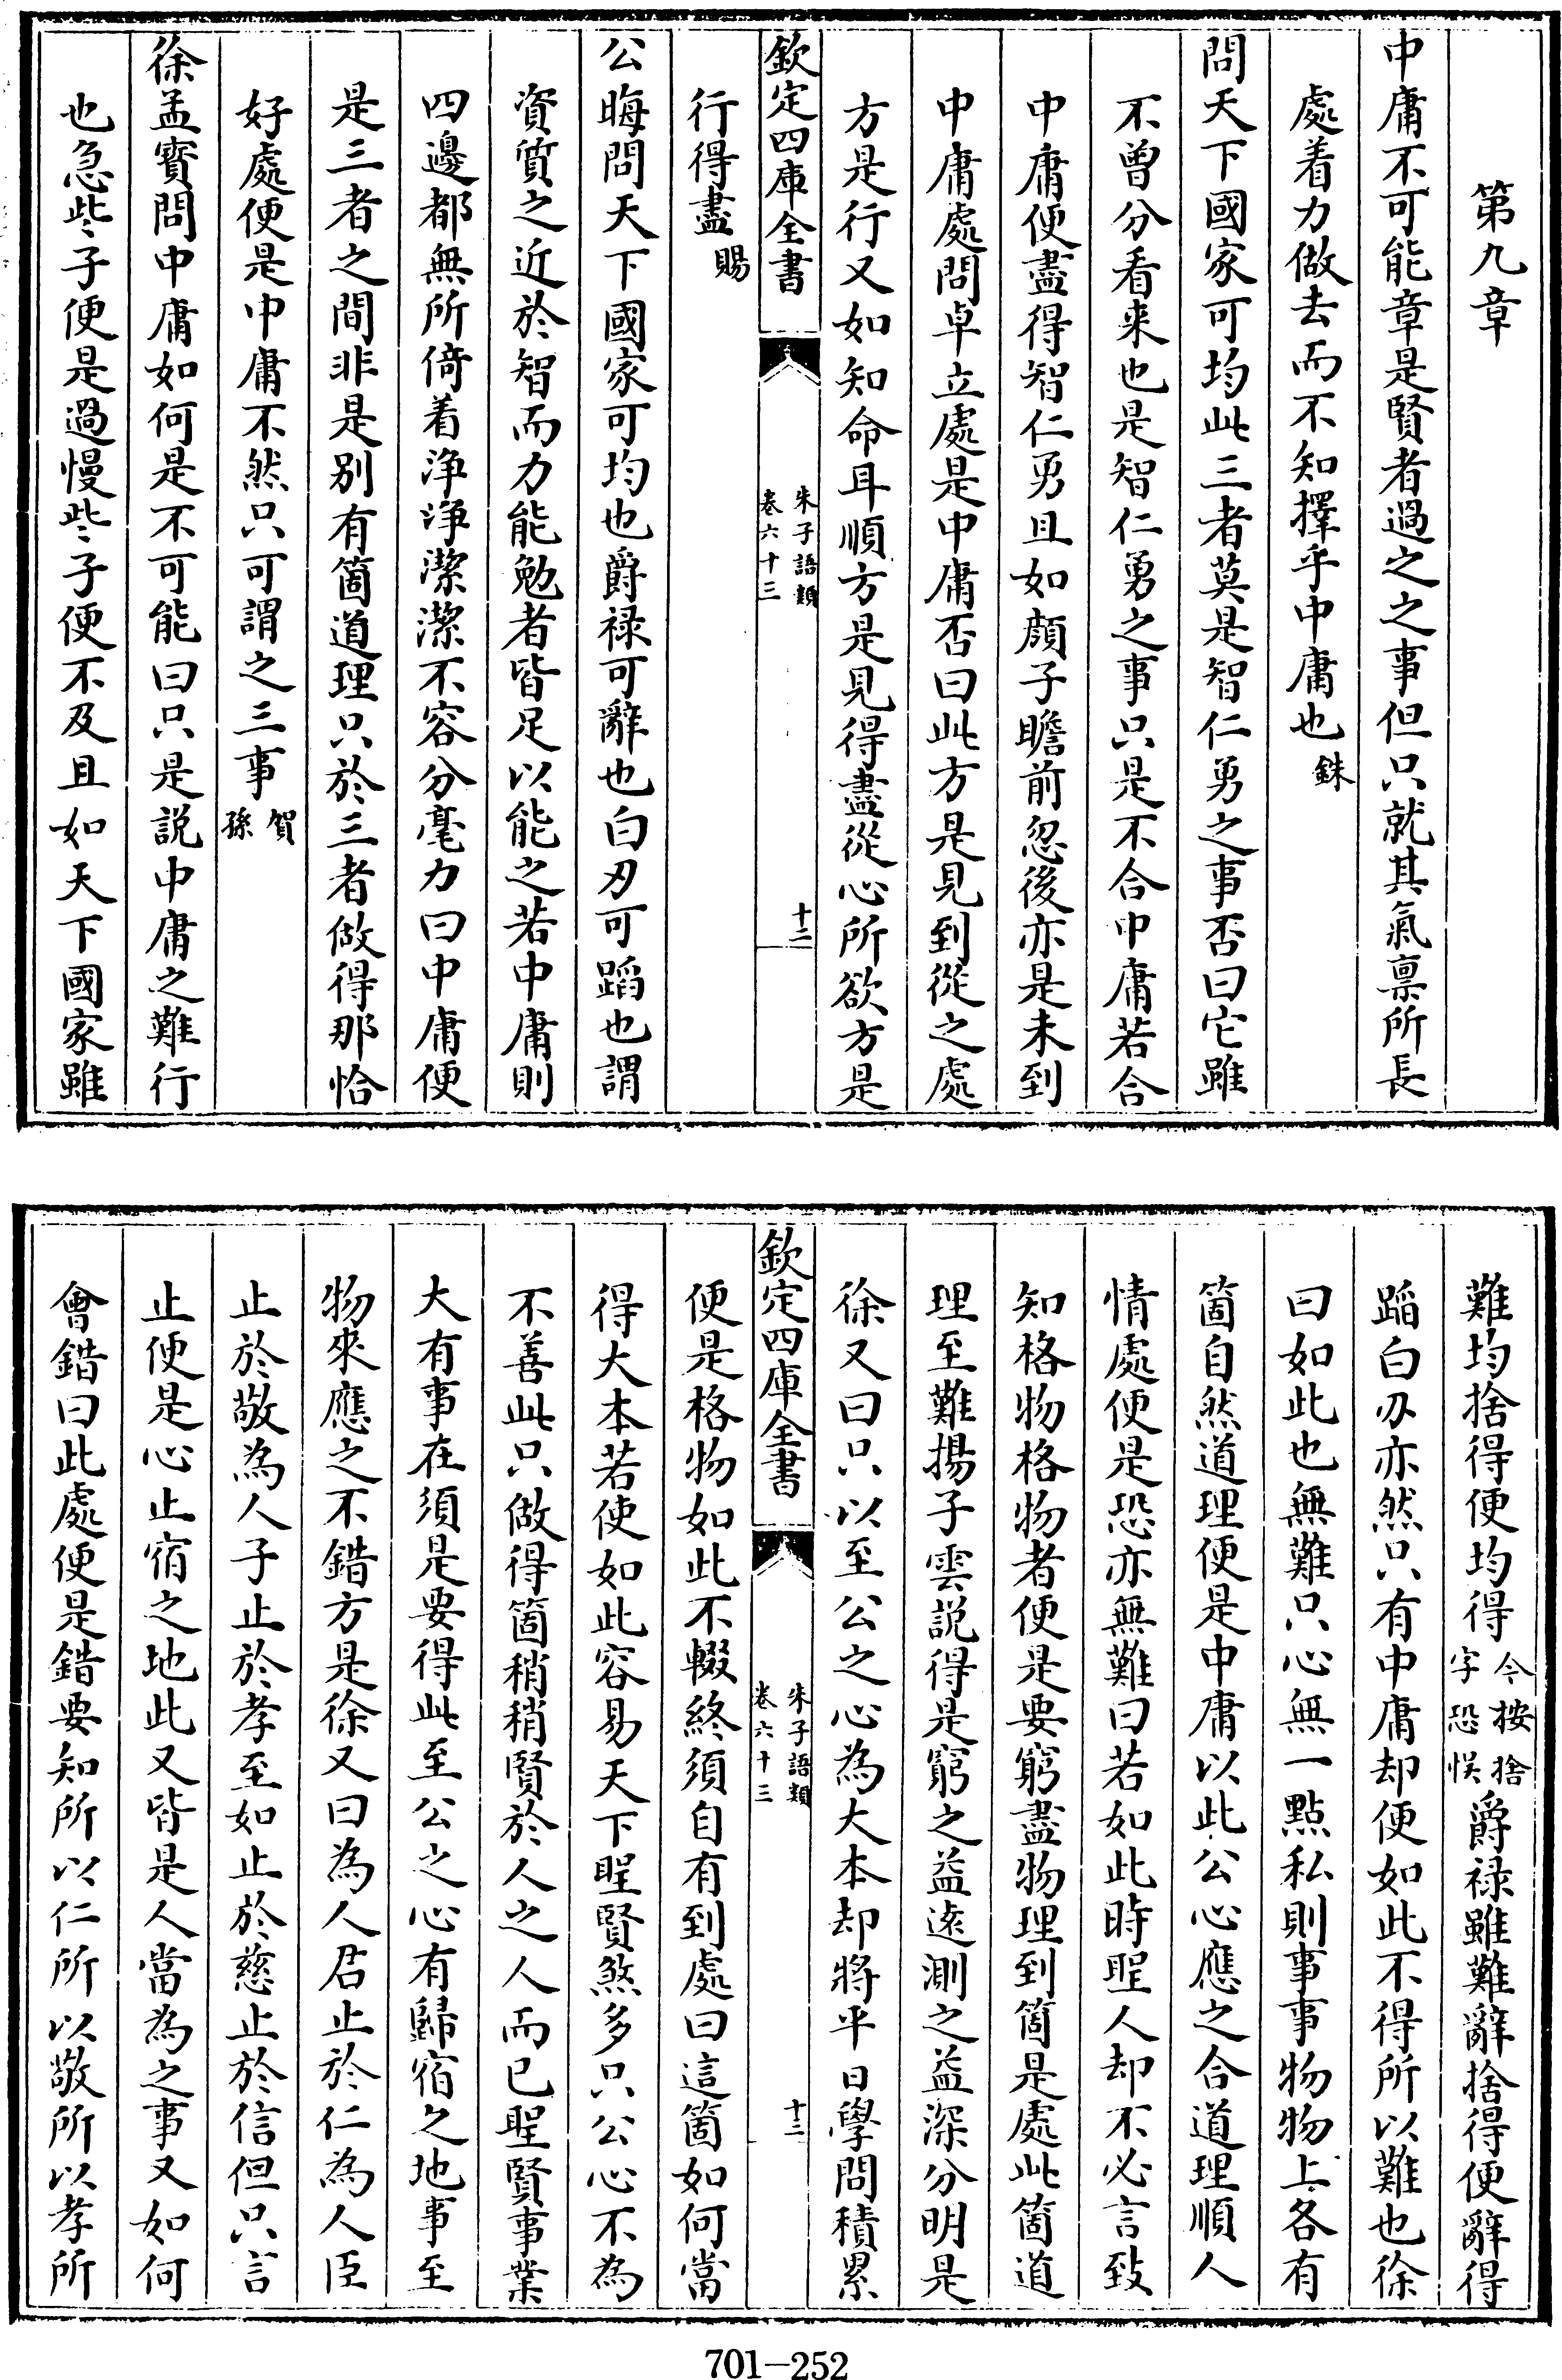 第九章
中庸不可能章是賢者過之之事但只就其氣禀所長
處着力做去而不知擇乎中庸也銖
問天下國家可均此三者莫是智仁勇之事否曰它雖
不曽分看来也是智仁勇之事只是不合中庸若合
中庸便盡得智仁勇且如顔子瞻前忽後亦是未到
中庸處問卓立處是中庸否曰此方是見到從之處
方是行又如知命耳順方是見得盡從心所欲方是
欽定四庫全書
朱子語類
卷六十三
十二
行得盡賜
公晦問天下國家可均也爵禄可辭也白刃可蹈也謂
資質之近於智而力能勉者皆足以能之若中庸則
四邊都無所倚着浄浄潔潔不容分毫力曰中庸便
是三者之間非是别有箇道理只於三者做得那恰
好處便是中庸不然只可謂之三事賀孫
徐孟寳問中庸如何是不可能曰只是説中庸之難行
也急些子便是過慢些子便不及且如天下國家雖
難均捨得便均得今按捨字恐悮爵禄雖難辭捨得便辭得
蹈白刃亦然只有中庸却便如此不得所以難也徐
曰如此也無難只心無一點私則事事物物上各有
箇自然道理便是中庸以此公心應之合道理順人
情處便是恐亦無難曰若如此時聖人却不必言致
知格物格物者便是要窮盡物理到箇是處此箇道
理至難揚子雲説得是窮之益逺測之益深分明是
徐又曰只以至公之心為大本却將平日學問積累
欽定四庫全書
朱子語類
卷六十三
十三
便是格物如此不輟終須自有到處曰這箇如何當
得大本若使如此容易天下聖賢煞多只公心不為
不善此只做得箇稍稍賢於人之人而已聖賢事業
大有事在須是要得此至公之心有歸宿之地事至
物來應之不錯方是徐又曰為人君止於仁為人臣
止於敬為人子止於孝至如止於慈止於信但只言
止便是心止宿之地此又皆是人當為之事又如何
會錯曰此處便是錯要知所以仁所以敬所以孝所
701—252